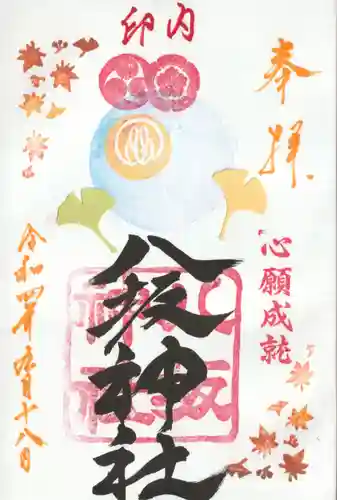 内印
奉拝
心願成就
八坂神社
八坂神社
令和四年九月十八日